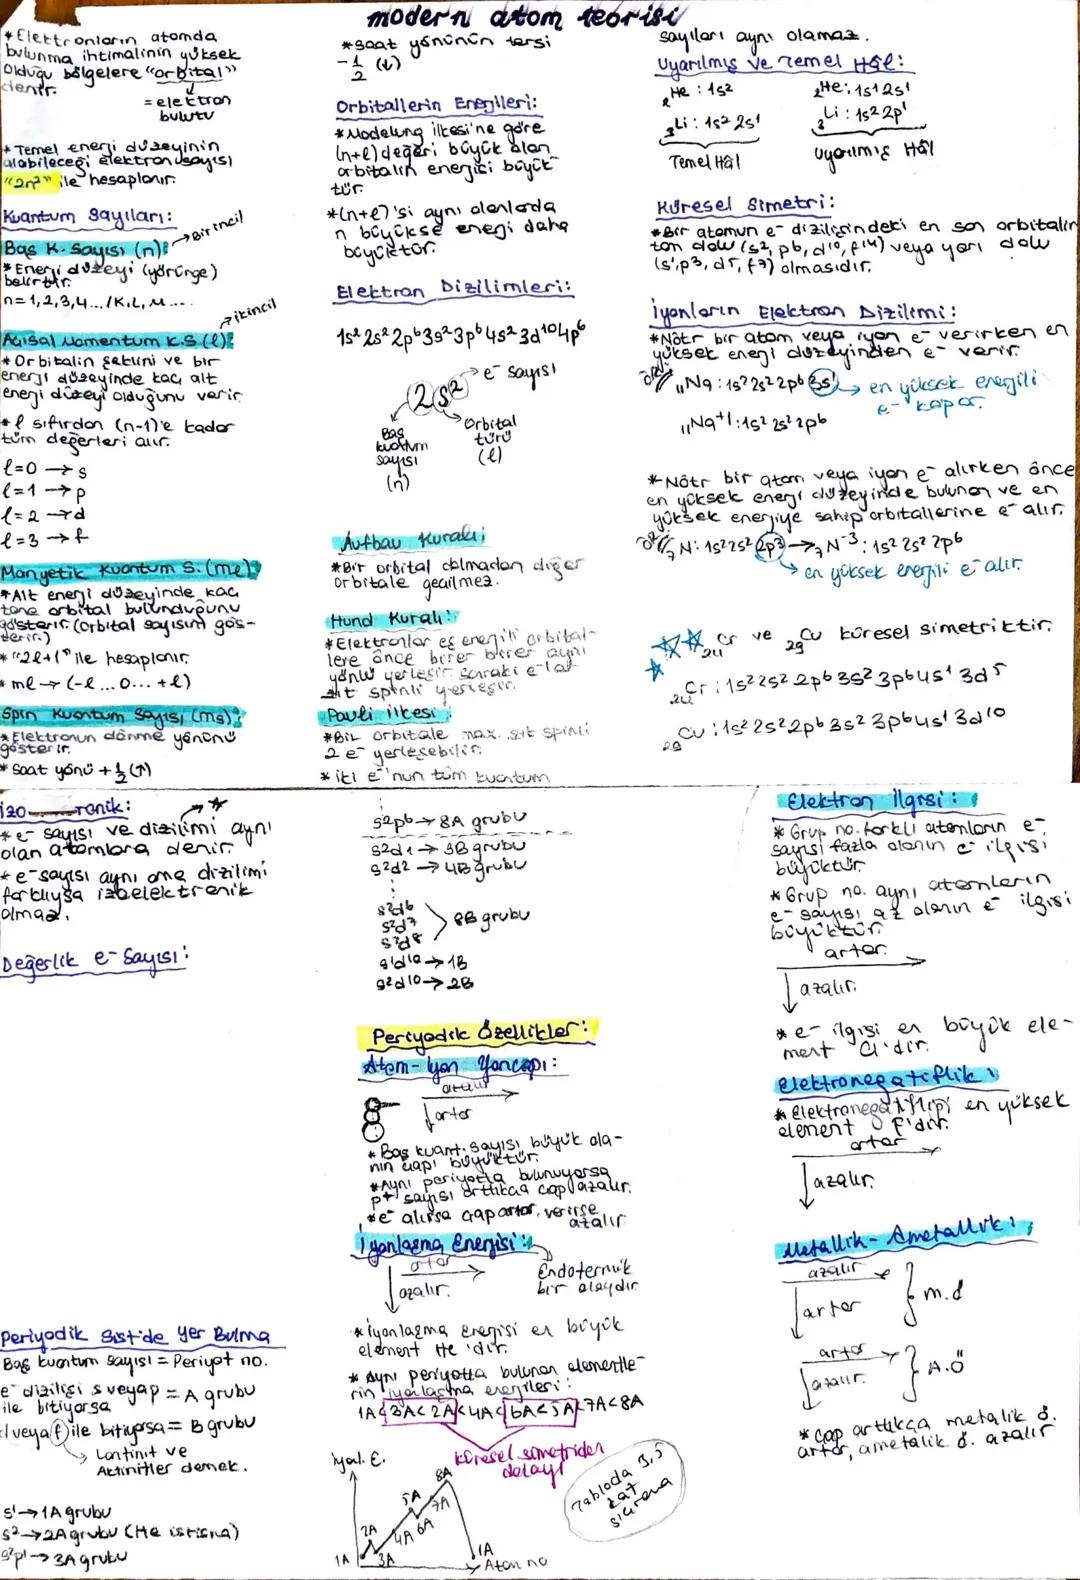 modern atom teorisi
*Elektronların atomda
bulunma ihtimalinin yüksek
olduğu bölgelere "orbital"
denir.
=elektron
bulutu
*Temel enerji düzeyinin
alabileceği elektron sayısı
"2n²" ile hesaplanır.
Kuantum Sayıları:
Baş K. Sayısı (n): →Birincil
*Enerji düzeyi (yörünge)
belirtir.
n=1,2,3,4.../K,L,M....
Açısal Momentum K.S (l): →ikincil
*Orbitalin şeklini ve bir
enerji düzeyinde kaç alt
enerji düzeyi olduğunu verir
*l sıfırdan (n-1)'e kadar
tüm değerleri alır.
l=0 → s
l=1 → p
l=2 → d
l=3 → f
Manyetik Kuantum S. (ml):
*Alt enerji düzeyinde kaç
tane orbital bulunduğunu
gösterir. (Orbital sayısını gös-
terir.)
*"2l+1" ile hesaplanır.
*ml → (-l ...0... +l)
Spin Kuantum Sayısı (ms):
*Elektronun dönme yönünü
gösterir.
*Saat yönü +1/2 (↑)
*saat yönünün tersi
-1/2 (↓)
Orbitallerin Enerjileri:
*Modelung ilkesi'ne göre
(n+l) değeri büyük olan
orbitalin enerjisi büyük-
tür.
*(n+l)'si aynı olanlarda
n büyükse enerji daha
büyüktür.
Elektron Dizilimleri:
1s² 2s² 2p⁶ 3s² 3p⁶ 4s² 3d¹⁰ 4p⁶
2s² → e⁻ sayısı
Baş
kuantum
sayısı
(n)
Orbital
türü
(l)
Aufbau Kuralı:
*Bir orbital dolmadan diğer
orbitale geçilmez.
Hund Kuralı:
*Elektronlar eş enerjili orbital-
lere önce birer birer aynı
yönlü yerleşir. Sonraki e⁻lar
zıt spinli yerleşir.
Pauli ilkesi:
*Bir orbitale max. zıt spinli
2 e⁻ yerleşebilir.
*iki e⁻'nun tüm kuantum
sayıları aynı olamaz.
Uyarılmış ve Temel Hâl:
₂He : 1s²
₃Li : 1s² 2s¹
Temel Hâl
₂He : 1s¹ 2s¹
₃Li : 1s² 2p¹
uyarılmış Hâl
Küresel Simetri:
*Bir atomun e⁻ dizilişindeki en son orbitalin
tam dolu (s², p⁶, d¹⁰, f¹⁴) veya yarı dolu
(s¹, p³, d⁵, f⁷) olmasıdır.
İyonların Elektron Dizilimi:
*Nötr bir atom veya iyon e⁻ verirken en
yüksek enerji düzeyinden e⁻ verir.
ör/ ₁₁Na : 1s² 2s² 2p⁶ 3s¹ → en yüksek enerjili
e⁻ kopar.
₁₁Na⁺¹ : 1s² 2s² 2p⁶
*Nötr bir atom veya iyon e⁻ alırken önce
en yüksek enerji düzeyinde bulunan ve en
yüksek enerjiye sahip orbitallerine e⁻ alır.
ör/ ₇N : 1s² 2s² 2p³ → ₇N⁻³ : 1s² 2s² 2p⁶
→ en yüksek enerjili e⁻ alır.
₂₄Cr ve ₂₉Cu küresel simetriktir.
₂₄Cr : 1s² 2s² 2p⁶ 3s² 3p⁶ 4s¹ 3d⁵
₂₉Cu : 1s² 2s² 2p⁶ 3s² 3p⁶ 4s¹ 3d¹⁰
izo ronik:
*e⁻ sayısı ve dizilimi aynı
olan atomlara denir.
*e⁻ sayısı aynı ama dizilimi
farklıysa izoelektronik
olmaz.
Değerlik e⁻ Sayısı:
Periyodik Sist'de Yer Bulma
Baş kuantum sayısı = Periyot no.
e⁻ dizilişi s veya p = A grubu
ile bitiyorsa
d veya f ile bitiyorsa = B grubu
→ Lantinit ve
Aktinitler demek.
s¹ → 1A grubu
s² → 2A grubu (He istisna)
s²p¹ → 3A grubu
s²p⁶ → 8A grubu
s²d¹ → 3B grubu
s²d² → 4B grubu
s²d⁶
s²d⁷
s²d⁸
8B grubu
s¹d¹⁰ → 1B
s²d¹⁰ → 2B
Periyodik Özellikler:
Atom-İyon Yarıçapı:
artar
*Baş kuant. sayısı büyük ola-
nın çapı büyüktür.
*Aynı periyotta bulunuyorsa
p⁺ sayısı arttıkça çap azalır.
*e⁻ alırsa çap artar, verirse
azalır
İyonlaşma Enerjisi:
artar
azalır.
Endotermik
bir olaydır.
*iyonlaşma enerjisi en büyük
element He 'dir.
*Aynı periyotta bulunan elementle-
rin iyonlaşma enerjileri:
1A<3A<2A<4A<6A<5A<7A<8A
küresel simetriden
dolayı
iyal. E.
1A
2A
3A
4A
5A
6A
7A
8A
1A
Atom no
Tabloda 3,5
zat
Elektron ilgisi:
*Grup no. farklı atomların e⁻
sayısı fazla olanın e⁻ ilgisi
büyüktür.
*Grup no. aynı atomların
e⁻ sayısı az olanın e⁻ ilgisi
büyüktür.
artar.
azalır.
*e⁻ ilgisi en büyük ele-
ment Cl'dir.
Elektronegatiflik:
*Elektronegatifliği en yüksek
element F'dir.
artar
azalır.
Metallik-Ametallik:
azalır
artar
m.d
artar
azalır.
A.Ö
*Çap arttıkça metalik ö.
artar, ametalik ö. azalır